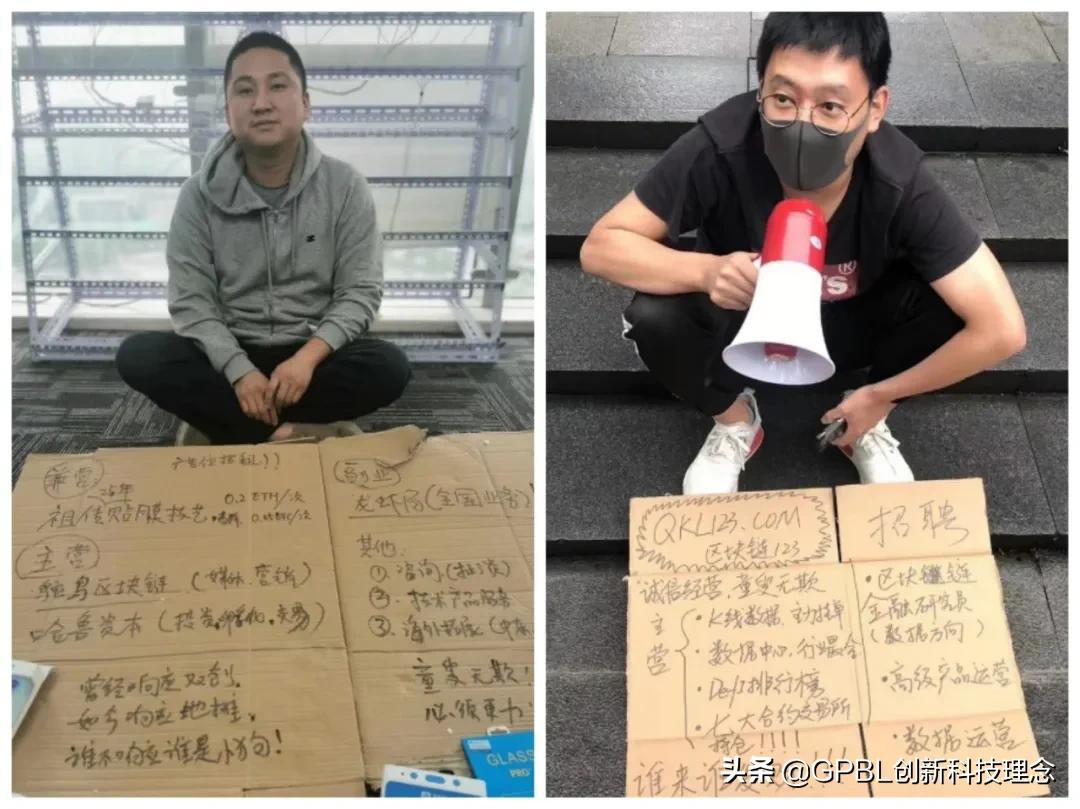 广告位招租!!
兼营
25年
祖传贴膜技艺
0.2 ETH/次
主营
鸵鸟区块链 (媒体、营销)
哈鲁资本 (投资、孵化、交易)
曾经响应双创,
如今响应地摊,
谁不响应谁是小狗!
副业
龙虾局(全国业务)
其他:
① 咨询
② 技术产品服务
③ 海外拓展
童叟无欺!
GLASS
PRO
QKL123.COM
区块链123
诚信经营,童叟无欺
主营
·K线数据、主力挂单
·数据中心,行业最全
·Defi排行榜
·大合约交易所
招聘
·区块链
金融研究员
(数据方向)
·高级产品运营
·数据运营
头条 @GPBL创新科技理念